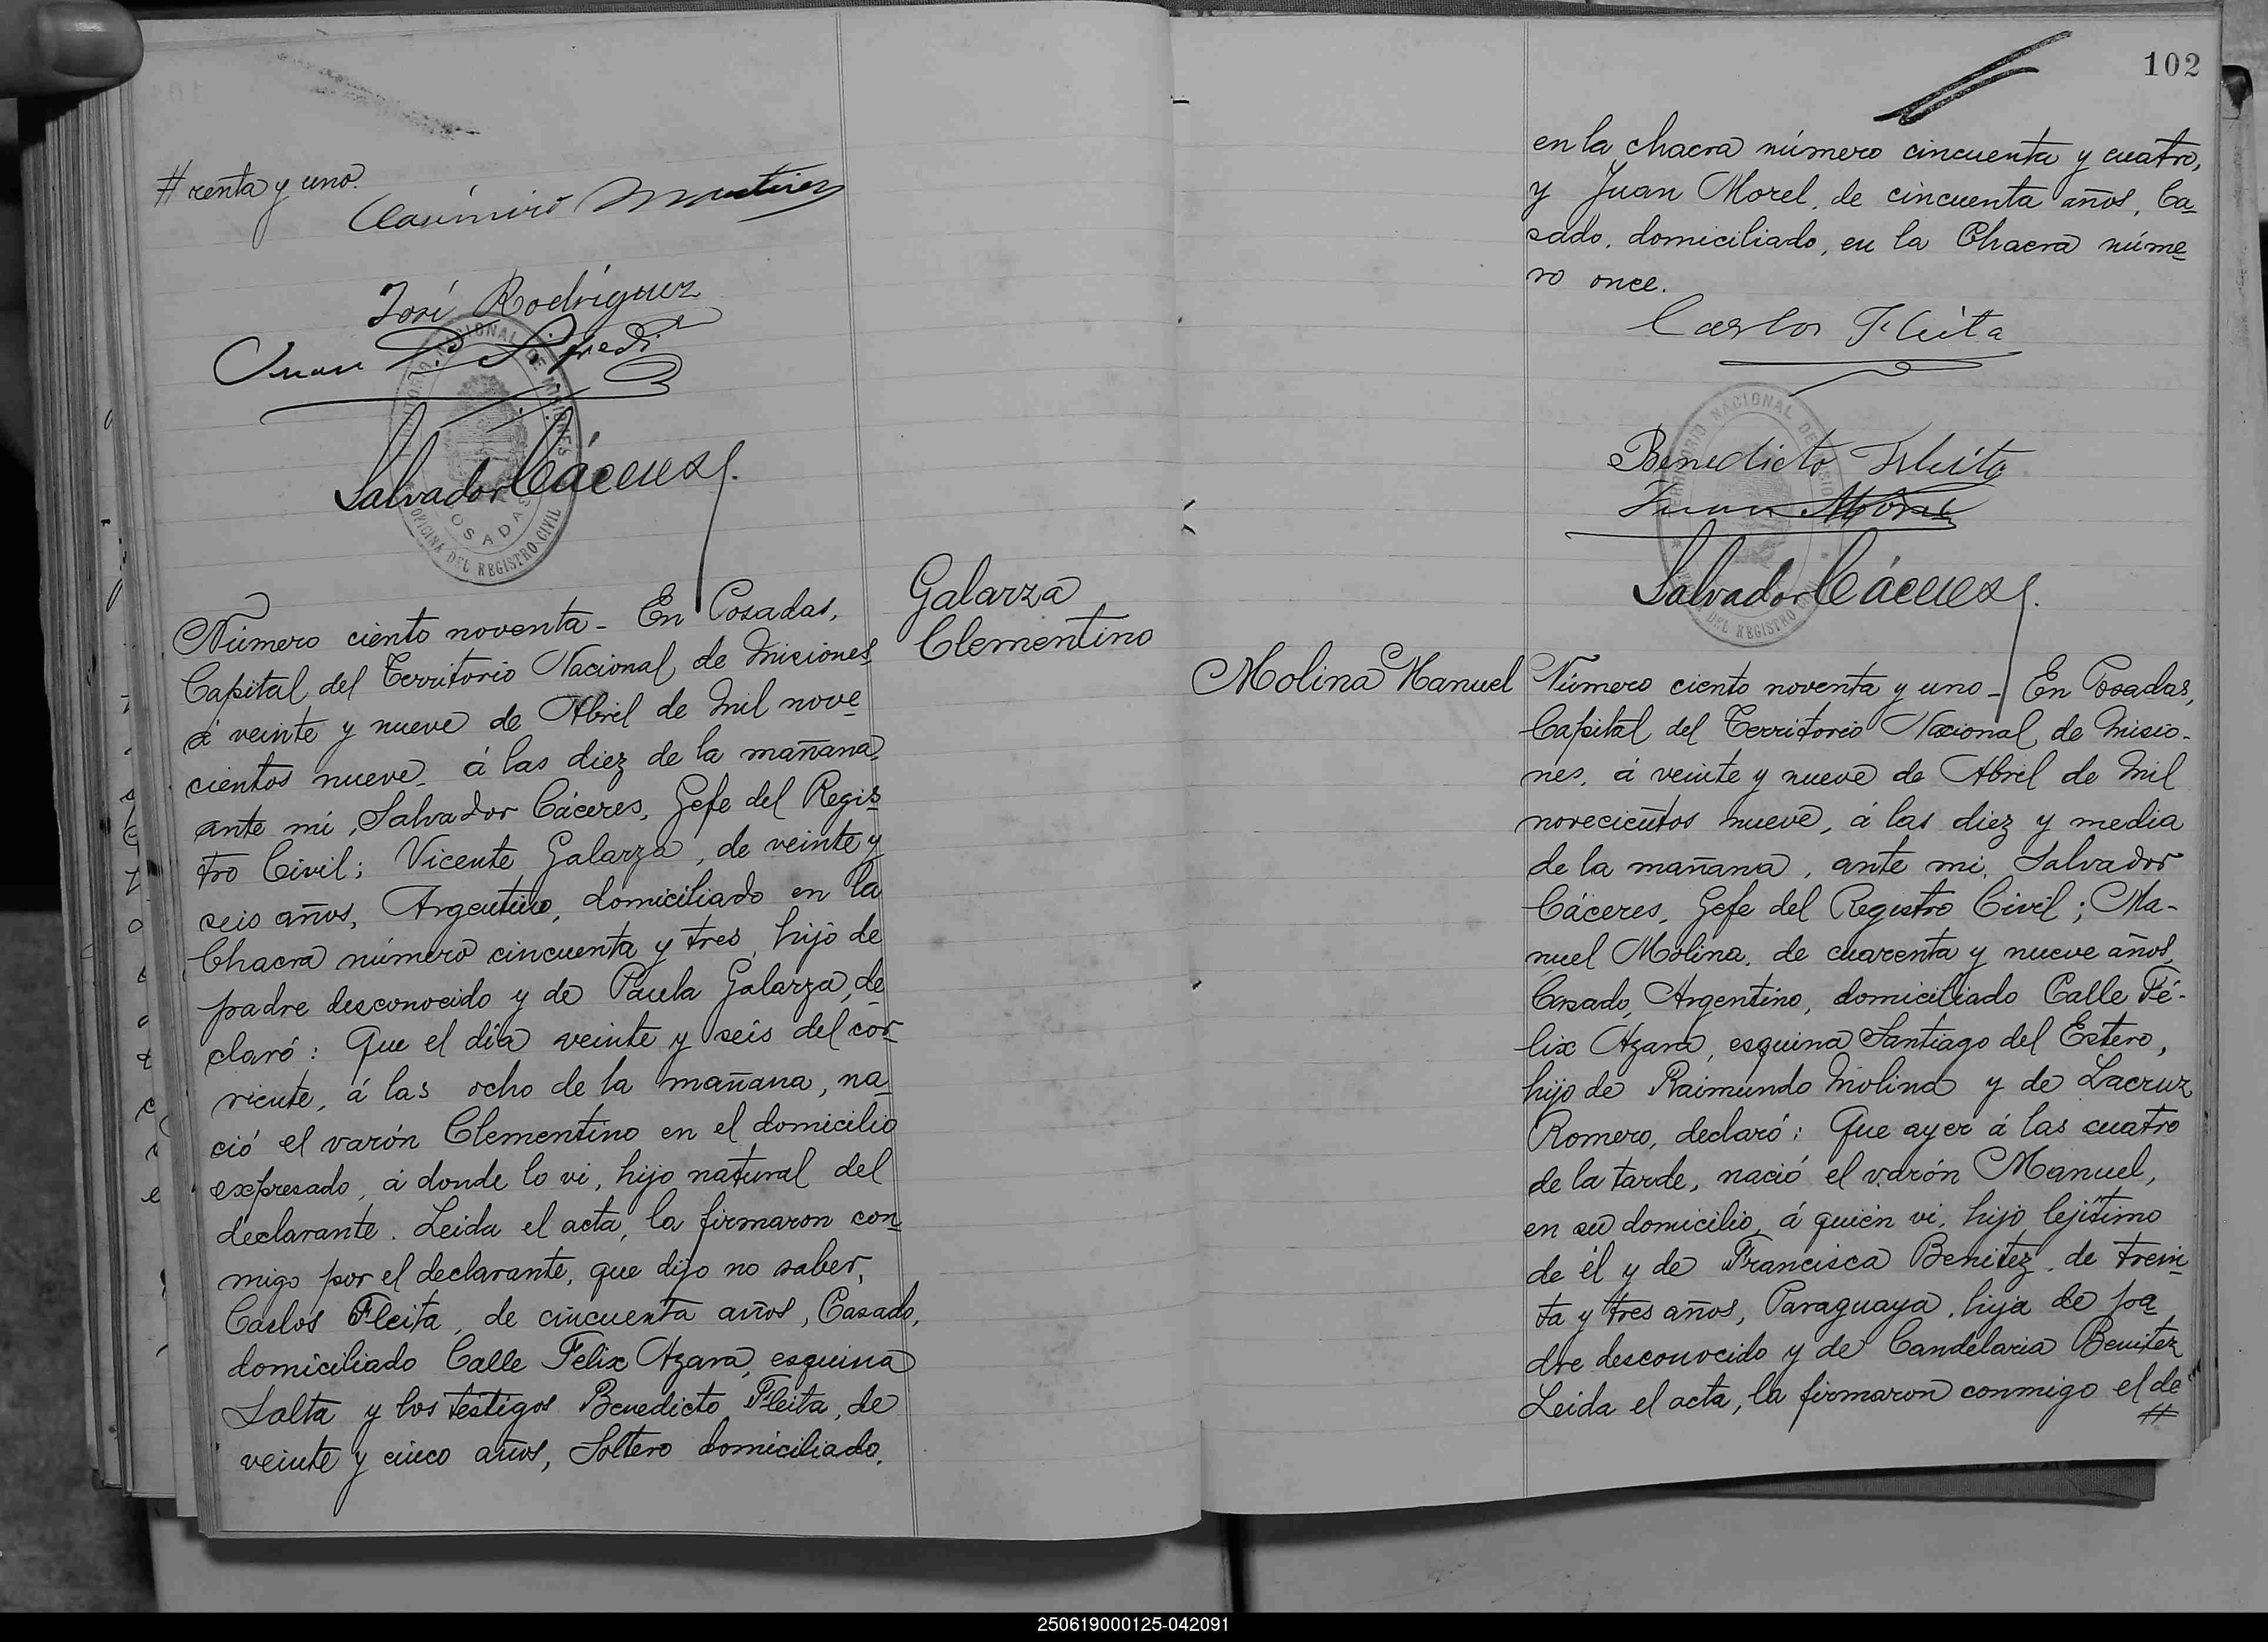 # renta y uno.
Casimiro Martinez
José Rodríguez
Juan P.
TERRITORIO NACIONAL DE MISIONES
POSADAS
OFICINA DEL REGISTRO CIVIL
Salvador Cáceres
Número ciento noventa - En Posadas,
Capital del Territorio Nacional de Misiones
á veinte y nueve de Abril de Mil nove
cientos nueve, á las diez de la mañana
ante mi, Salvador Cáceres, Gefe del Regis
tro Civil; Vicente Galarza, de veinte y
seis años, Argentino, domiciliado en la
Chacra número cincuenta y tres, hijo de
padre desconocido y de Paula Galarza, de
claró: Que el día veinte y seis del cor
riente, á las ocho de la mañana, na
ció el varón Clementino en el domicilio
expresado, á donde lo vi, hijo natural del
declarante. Leida el acta, la firmaron con
migo por el declarante, que dijo no saber,
Carlos Fleita, de cincuenta años, Casado,
domiciliado Calle Felix Azara, esquina
Salta y los testigos Benedicto Fleita, de
veinte y cinco años, Soltero domiciliado,
Galarza
Clementino
102
en la chacra número cincuenta y cuatro,
y Juan Morel, de cincuenta años, Ca
sado, domiciliado, en la Chacra núme
ro once.
Carlos Fleita
Benedicto Fleita
Juan Morel
TERRITORIO NACIONAL DE MISIONES
DEL REGISTRO CIVIL
Salvador Cáceres
Molina Manuel
Número ciento noventa y uno - En Posadas,
Capital del Territorio Nacional de Misio-
nes, á veinte y nueve de Abril de Mil
novecientos nueve, á las diez y media
de la mañana, ante mi, Salvador
Cáceres, Gefe del Registro Civil; Ma-
nuel Molina, de cuarenta y nueve años,
Casado, Argentino, domiciliado Calle Fé-
lix Azara, esquina Santiago del Estero,
hijo de Raimundo Molina y de Lacruz
Romero, declaró: Que ayer á las cuatro
de la tarde, nació el varón Manuel,
en su domicilio, á quién vi, hijo lejítimo
de él y de Francisca Benitez, de trein
ta y tres años, Paraguaya, hija de pa
dre desconocido y de Candelaria Benitez
Leida el acta, la firmaron conmigo el de
#
250619000125-042091